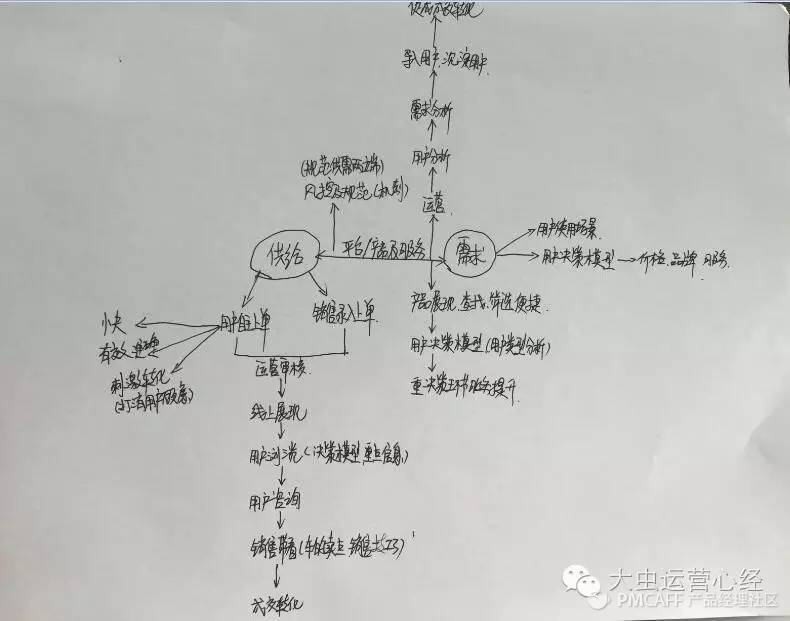 导入用户,沉淀用户
需求分析
用户分析
运营
(规范供需两端)
风控及规范(机制)
供给
平台/产品及服务
需求
用户使用场景
用户决策模型 价格.品牌.服务.
用户自主上单
销售录入上单.
快
有效.准确
刺激转化
(打消用户顾虑)
运营审核
线上展现
用户浏览(决策模型,重点信息)
用户咨询
销售带看(车的卖点,销售技巧)
成交转化
产品展现,查找,筛选便捷.
用户决策模型(用户类型分析)
重决策环节服务提升.
大虫运营心经
PMCAFF 产品经理社区